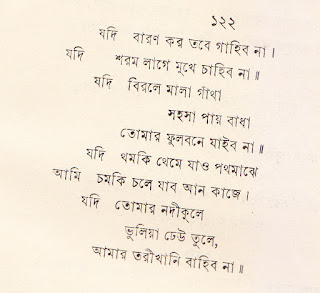 ১২২
যদি বারণ কর তবে গাহিব না।
যদি শরম লাগে মুখে চাহিব না॥
যদি বিরলে মালা গাঁথা
সহসা পায় বাধা
তোমার ফুলবনে যাইব না॥
যদি থমকি থেমে যাও পথমাঝে
আমি চমকি চলে যাব আন কাজে।
যদি তোমার নদীকূলে
ভুলিয়া ঢেউ তুলে,
আমার তরীখানি বাহিব না॥